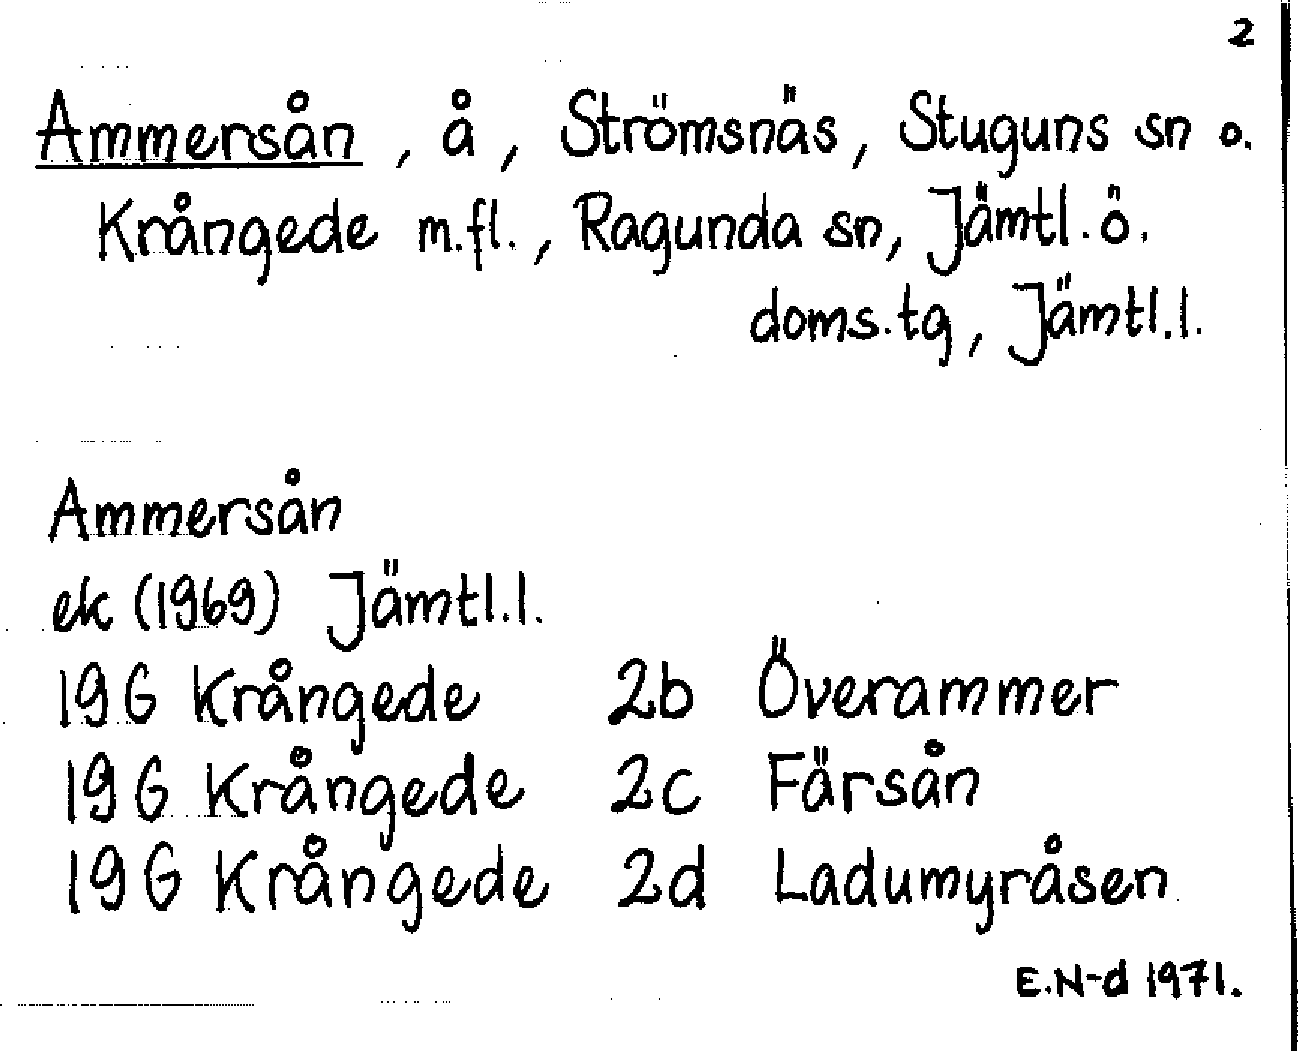 2
Ammersån, å, Strömsnäs, Stuguns sn o.
Krångede m.fl., Ragunda sn, Jämtl.ö.
doms.tg, Jämtl.l.
Ammersån
ek (1969) Jämtl.l.
19G Krångede 2b Överammer
19G Krångede 2c Färsån
19G Krångede 2d Ladumyråsen
E.N-d 1971.